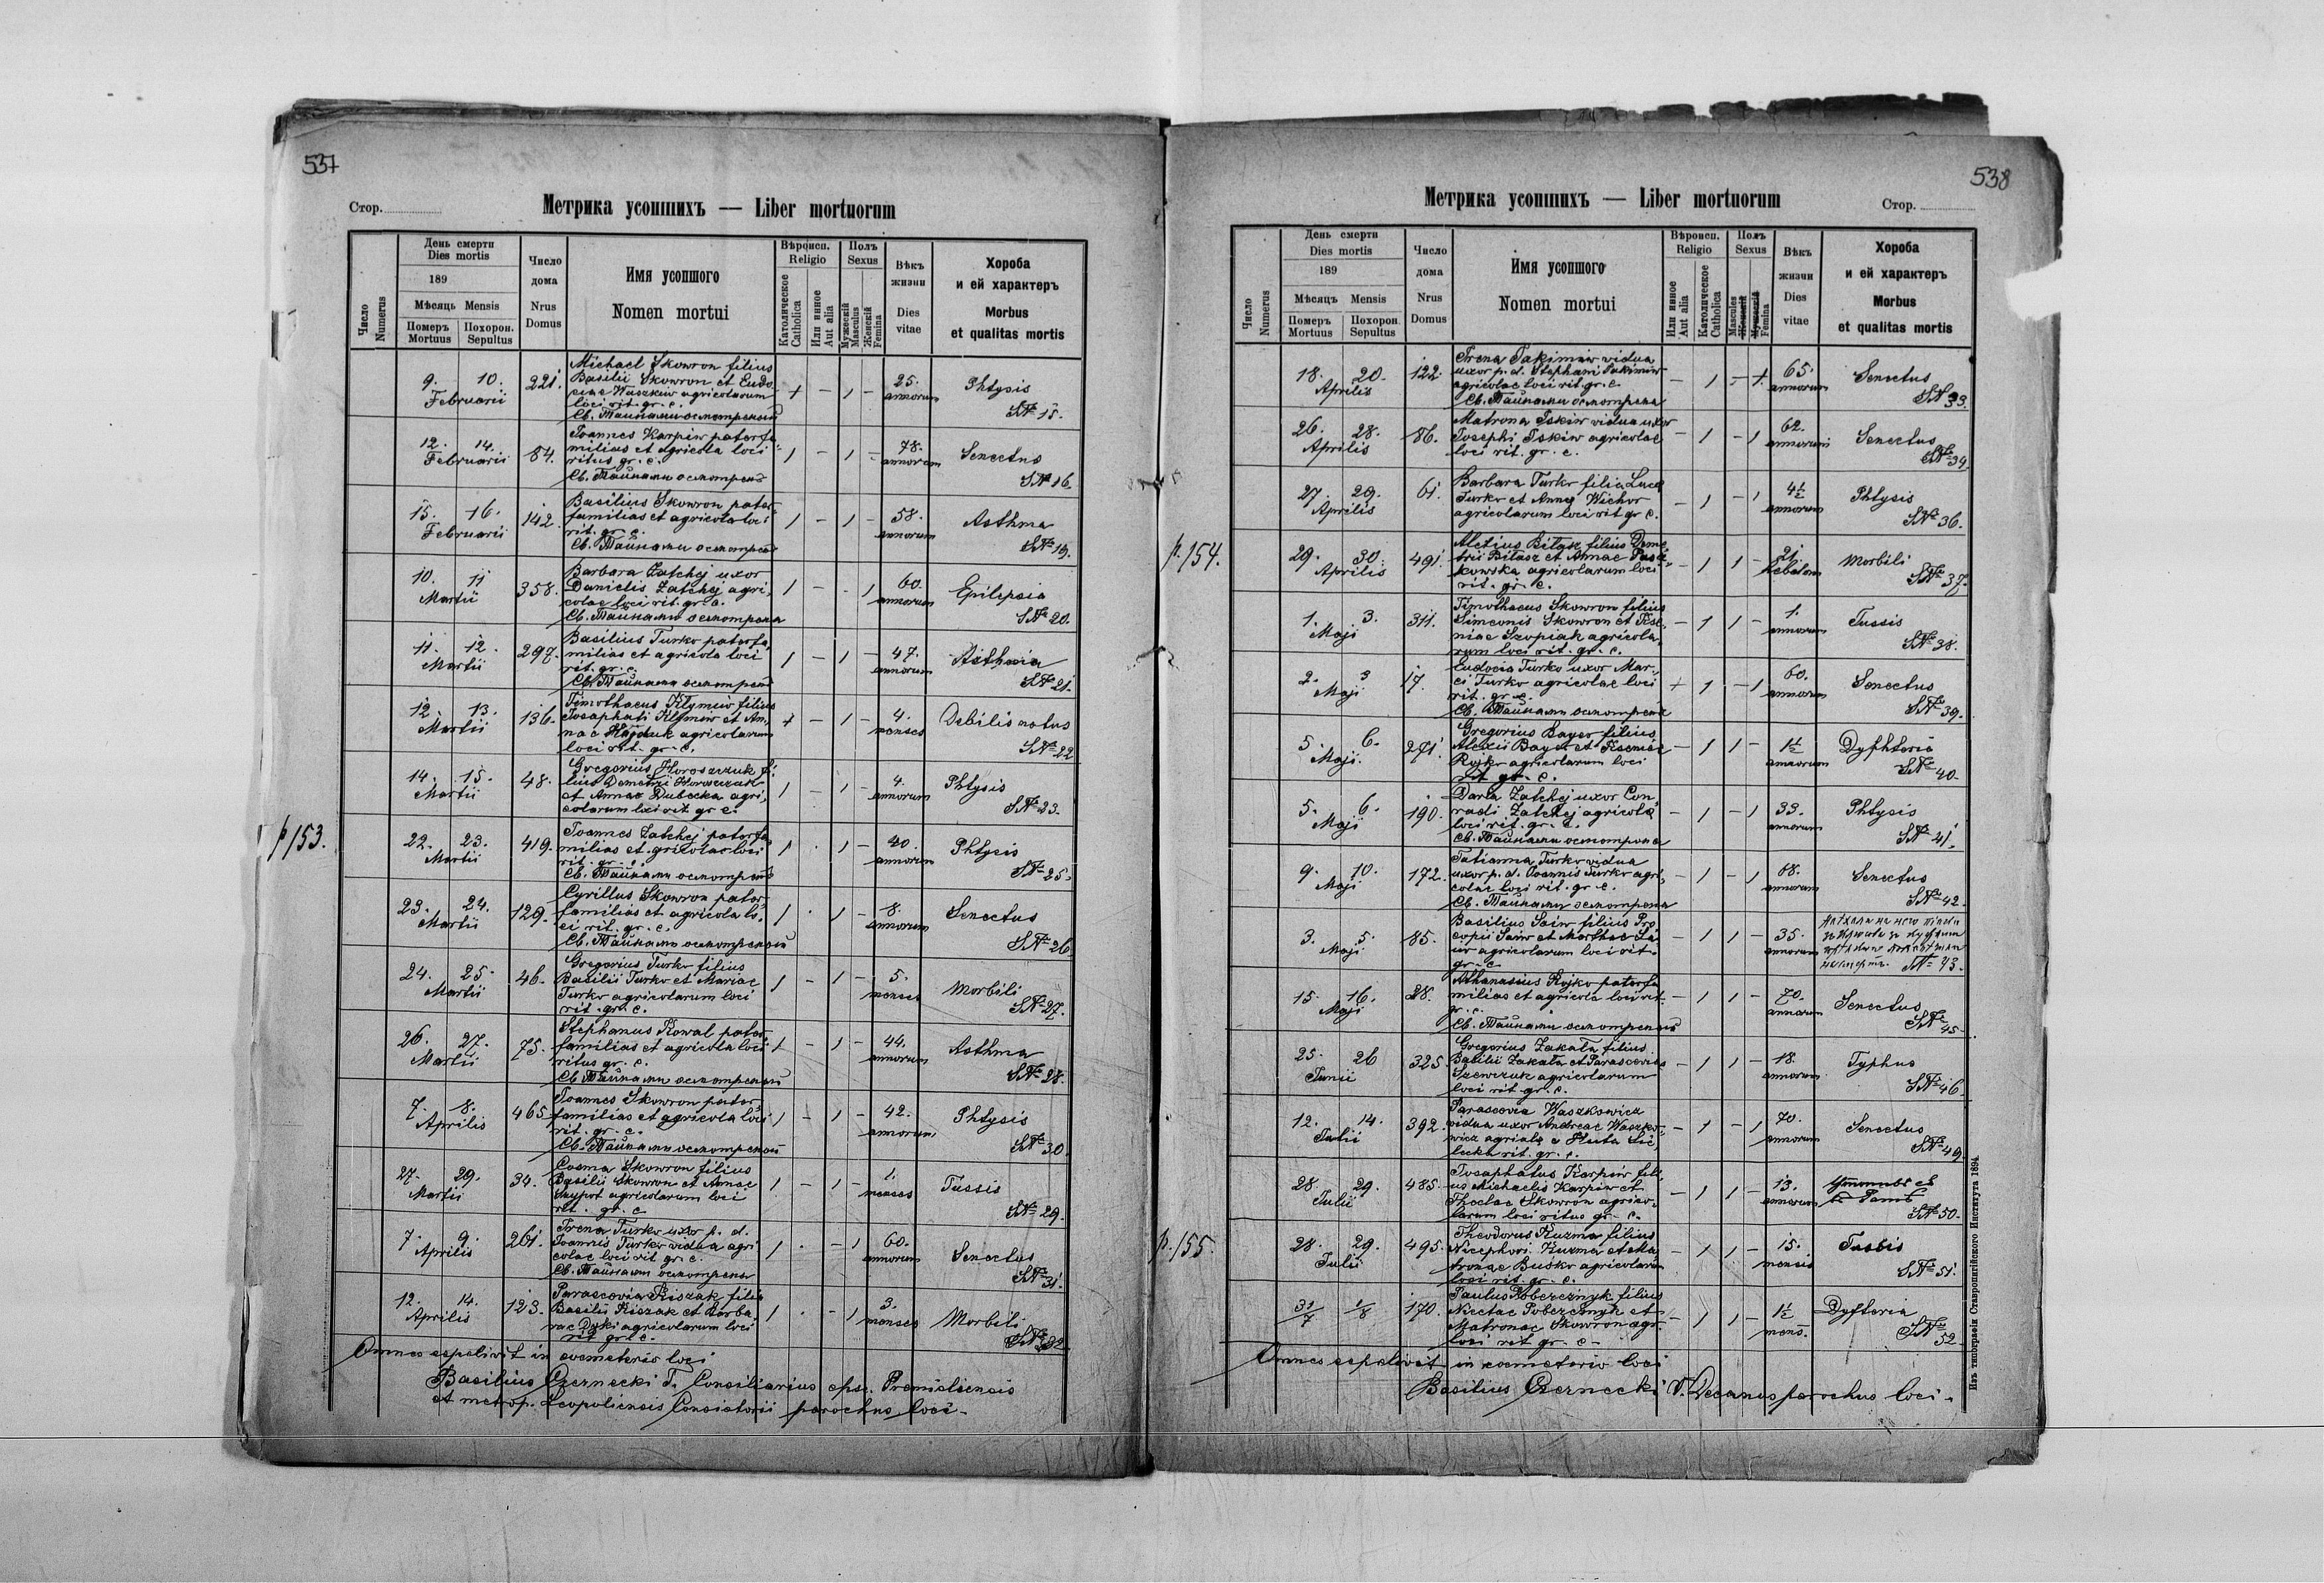 537
Стор.
Метрика усопшихъ — Liber mortuorum
Число Numerus
День смерти
Dies mortis
189
Мѣсяць Mensis
Померъ Mortuus
Похорон. Sepultus
Число дома
Nrus Domus
Имя усопшого
Nomen mortui
Вѣроисп. Religio
Католическое Catholica
Или инное Aut alia
Полъ Sexus
Мужескій Masculus
Женскій Femina
Вѣкъ жизни
Dies vitae
Хороба
и ей характеръ
Morbus
et qualitas mortis
9. 10. Februarii 221.
Michael Skowron filius
Basilii Skowron et Eudo
ciae Waszkiw agricolarum
loci rit. gr. c.
Св. Тайнами осмотреный
+ – 1 – 25. annorum
Phtysis
№ 15.
12. 14. Februarii 84.
Joannes Karpiw paterfa
milias et agricola loci
ritus gr. c.
Св. Тайнами осмотрены
1 – 1 – 78. annorum
Senectus
№ 16.
15. 16. Februarii 142.
Basilius Skowron pater
familias et agricola loci
rit. gr. c.
Св. Тайнами осмотрены
1 – 1 – 58. annorum
Asthma
№ 19.
10. 11 Martii 358.
Barbara Zatchej uxor
Danielis Zatchej agri,
colae loci rit. gr. c.
Св. Тайнами осмотрена
1 – - 1 60. annorum
Epilepsia
№ 20.
11. 12. Martii 297.
Basilius Turko paterfa,
milias et agricola loci
rit. gr. c.
Св. Тайнами осмотрены
1 – 1 – 47. annorum
№ 21.
12. 13. Martii 136.
Timothaeus Klymiw filius
Josaphati Klymiw et An,
nae Hajduk agricolarum
loci rit. gr. c.
+ – 1 – 4. menses
Debilis natus
№ 22
14. 15. Martii 48.
Gregorius Horoszczuk fi.
lius Demetri Horoszczuk
et Annae Dubecka agri,
colarum loci rit. gr c.
1 – 1 – 4. annorum
Phtysis
№ 23.
p 153.
22. 23. Martii 419.
Joannes Zatchej paterfa
milias et gricolae loci
rit. gr. c.
Св. Тайнами осмотрены
1 . 1 – 40. annorum
Phtysis
№ 25.
23. 24. Martii 129.
Cyrillus Skowron pater,
familias et agricola lo.
ci rit. gr. c.
Св. Тайнами осмотреный
1 . 1 – 8. annorum
Senectus
№ 26.
24. 25. Martii 46.
Gregorius Turko filius
Basilii Turko et Mariae
Turko agricolarum loci
rit. gr. c.
1 – 1 – 5. menses
Morbili
№ 27.
26. 27. Martii 75.
Stephanus Kowal pater,
familias et agricola loci
ritus gr. c.
Св Тайнами осмотреный
1 – 1 – 44. annorum
Asthma
№ 28.
7. 8. Aprilis 465
Joannes Skowron pater,
familias et agricola loci
rit. gr. c.
Св. Тайнами осмотреный
1 – 1 – 42. annorum
Phtysis
№ 30.
27. 29. Martii 34.
Cosma Skowron filius
Basilii Skowron et Annae
agricolarum loci
rit. gr. c
1 – 1 – 1. menses
Tussis
№ 29.
7. 9. Aprilis 261.
Irena Turko uxor p. d.
Joannis Turko vidua agri
colae loci rit gr. c.
Св. Тайнами осмотрена
1 . - 1 60. annorum
Senectus
№ 31.
12. 14. Aprilis 123.
Parascovia Kiszak filia
Basilii Kiszak et Barba,
rae Dyki agricolarum loci
rit gr. c.
1 . - 1 3. menses
Morbili
№ 32
Omnes sepelivit in coemeterio loci
Basilius Czernecki Consiliarius epsc. Premisliensis
et metrop. Leopoliensis Consistorii parochus loci.
538
Метрика усопшихъ — Liber mortuorum
Стор.
Число Numerus
День смерти
Dies mortis
189
Мѣсяць Mensis
Померъ Mortuus
Похорон. Sepultus
Число дома
Nrus Domus
Имя усопшого
Nomen mortui
Вѣроисп. Religio
Или инное Aut alia
Католическое Catholica
Полъ Sexus
Masculus Женскій
Мужескій Femina
Вѣкъ жизни
Dies vitae
Хороба
и ей характеръ
Morbus
et qualitas mortis
18. 20. Aprilis 122
Irena Jakimiw vidua
uxor p. d. Stephani Jakimiw
agricolae loci rit. gr. c.
Св. Тайнами осмотрена
– 1 – 1. 65. annorum
Senectus
№ 33.
26. 28. Aprilis 86.
Matrona Iskiw vidua uxor
Josephi Iskiw agricolae
loci rit. gr. c.
– 1 – 1 62. annorum
Senectus
№ 34.
27. 29. Aprilis 61.
Barbara Turko filia Lucae
Turko et Annae Wichor
agricolarum loci rit gr c.
– 1 – 1 4½ annorum
Phtysis
№ 36.
p. 154.
29. 30. Aprilis 491.
Aletius Bitasz filius Deme
trii Bitasz et Annae Pasz
kowska agricolarum loci
rit. gr. c.
– 1 1 – 21.
Morbili
№ 37.
1. 3. Maji 311.
Timothaeus Skowron filius
Simeonis Skowron et Kse,
niae Szopiak agricola,
rum loci rit. gr. c.
– 1 1 – 1. annorum
Tussis
№ 38.
2. 3 Maji 17.
Eudocia Turko uxor Mar,
ci Turko agricolae loci
rit. gr. c.
Св. Тайнами осмотрена
+ 1 – 1 60. annorum
Senectus
№ 39.
5. 6. Maji. 271.
Gregorius Bayer filius
Alexii Bayer et Kseniae
Rojko agricolarum loci
rit gr. c.
– 1 1 – 1½ annorum
Dyphteria
№ 40.
5. 6. Maji 190.
Daria Zatchej uxor Con,
radi Zatchej agricola
loci rit. gr. c.
Св. Тайнами осмотрена
– 1 – 1 33. annorum
Phtysis
№ 41.
9. 10. Maji 172.
Tatianna Turko vidua
uxor p. d. Joannis Turko agri,
colae loci rit. gr c.
Св. Тайнами осмотрена
– 1 – 1 68. annorum
Senectus
№ 42.
3. 5. Maji 85.
Basilius Saiw filius Pro
copii Saiw et Marthae
agricolarum loci rit.
gr. c
– 1 1 – 35. annorum
№ 43.
15. 16. Maji 28.
Athanasius Rojko paterfa
milias et agricola loci rit.
gr. c.
Св. Тайнами осмотреный
– 1 1 – 70. annorum
Senectus
№ 45.
25. 26 Junii 325
Gregorius Zakala filius
Basilii Zakala et Parascovia
Szewczuk agricolarum
loci rit. gr. c.
– 1 1 – 18. annorum
Typhus
№ 46.
12. 14. Julii 392.
Parascovia Waszkowicz
vidua uxor Andreae Waszko,
wicz
rit. gr. c.
– 1 – 1 70. annorum
Senectus
№ 49.
28. 29. Julii 485.
Josaphatus Karpiw fili,
us Michaelis Karpiw et
Theclae Skowron agrico,
larum loci ritus gr. c.
– 1 1 – 13. annorum
№ 50.
p. 155.
28. 29. Julii 495.
Theodorus Kuzma filius
Nicephori Kuzma et Ma,
tronae Busko agricolarum
loci rit. gr. c.
– 1 1 – 15. mensis
Tussis
№ 51.
31/7 1/8 170.
Paulus Pobereznyk filius
Nicetae Pobereznyk et
Matronae Skowron agr.
loci rit gr. c.
– 1 1 – 1½ mens.
Dyfteria
№ 52
Omnes sepelivit in coemeterio loci
Basilius Czernecki V. Decanus parochus loci.
Изъ типографіи Ставропигійского Института 1894.